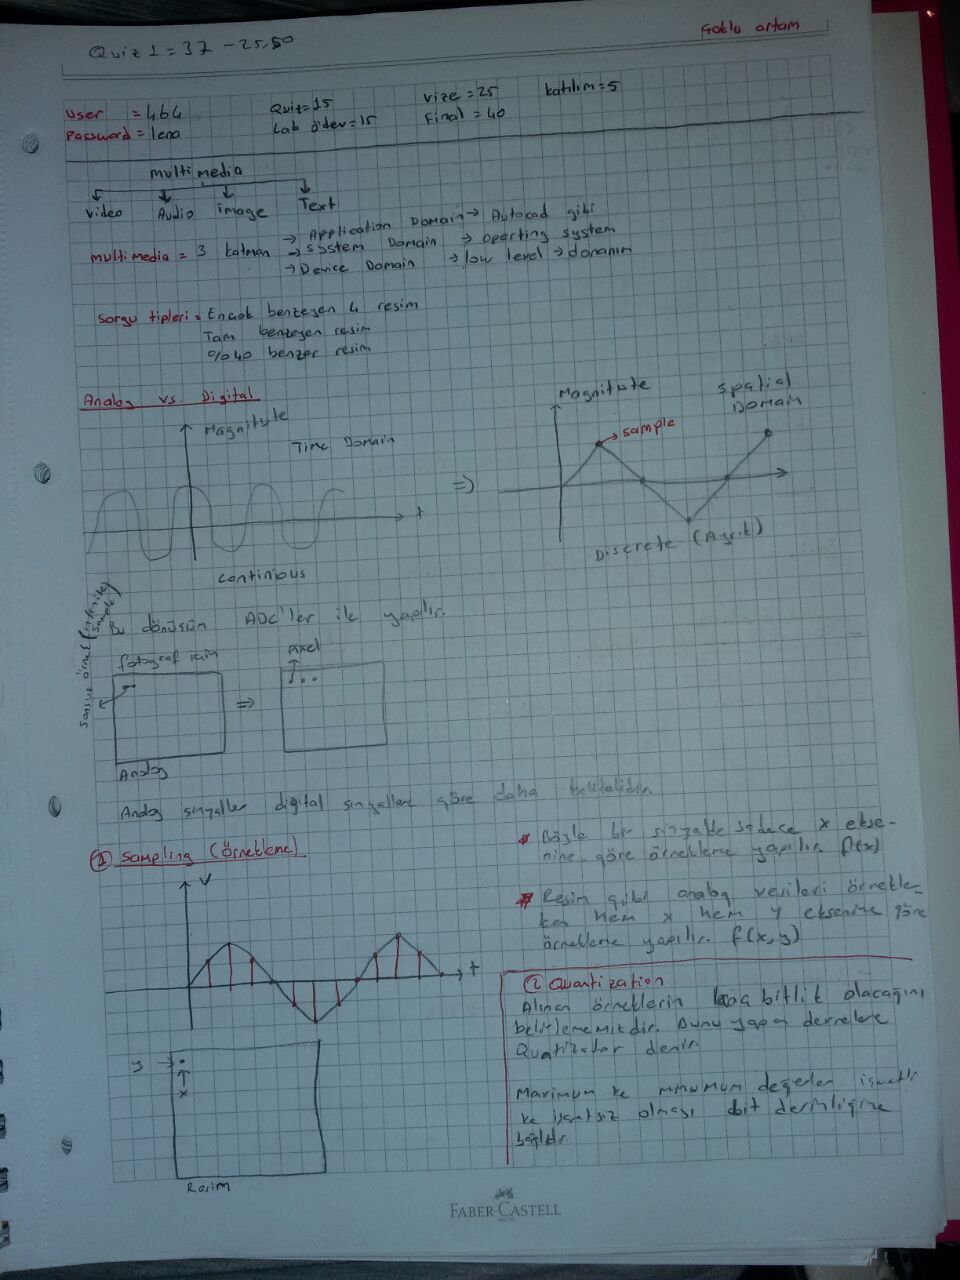 Quiz 1 = 37 - 25,50
Çoklu ortam
User = 464
Password = lena
Quiz = 15
Lab ödev = 15
Vize = 25
Final = 40
Katılım = 5
multimedia
Video Audio image Text
multimedia = 3 katman → Application Domain → Autocad gibi
→ System Domain → operting system
→ Device Domain → low level → donanım
Sorgu tipleri = Ençok benzeyen 4 resim
Tam benzeyen resim
%40 benzer resim
Analog vs. Digital
Magnitute
Time Domain
t
Continious
⇒
Magnitute
Spatial
Domain
sample
Discrete (Ayrıt)
Bu dönüşüm ADC'ler ile yapılır.
Sonsuz örnek (infinite
sample)
fotoğraf için
Analog
⇒
pixel
Analog sinyaller digital sinyallere göre daha kalitelidir.
1 Sampling (Örnekleme)
V
t
y →
x
Resim
* Böyle bir sinyalde sadece x ekse-
nine göre örnekleme yapılır. f(x)
* Resim gibi analog verileri örnekle-
ken hem x hem y eksenine göre
örnekleme yapılır. f(x,y)
2 Quantization
Alınan örneklerin kaç bitlik olacağını
belirlememizdir. Bunu yapan devrelere
Quatizator denir.
Maximum ve minumum değerler işaretli
ve işaretsiz olması bit derinliğine
bağlıdır.
FABER-CASTELL